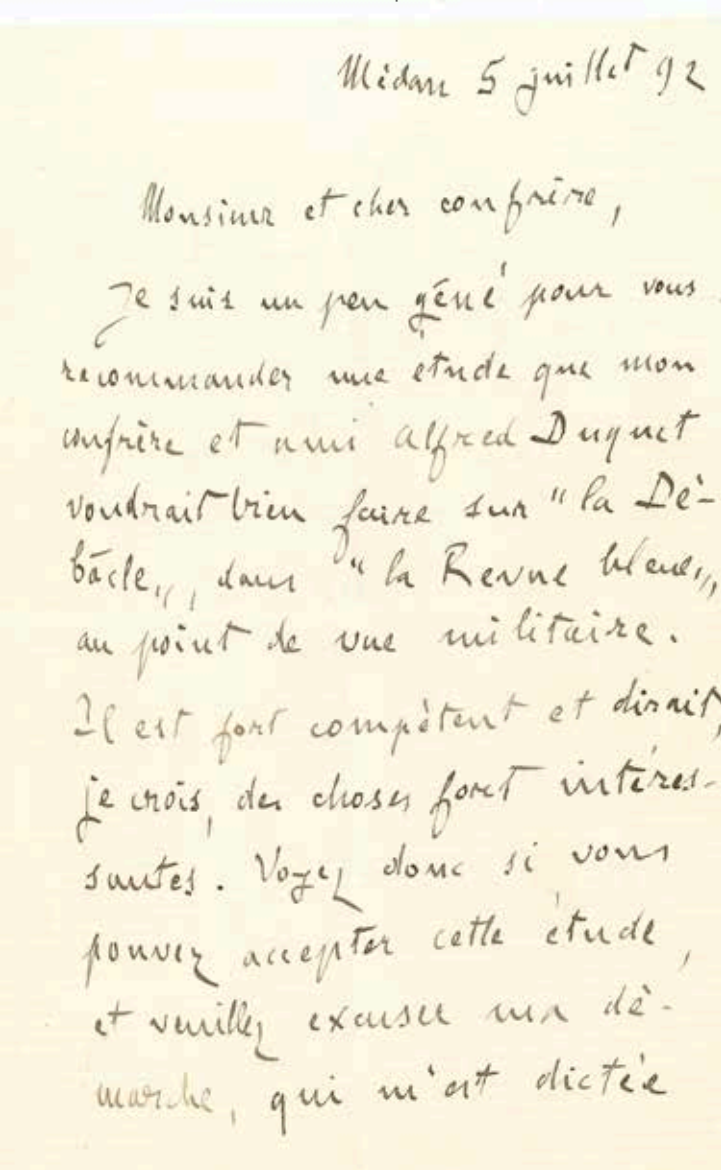 Médan 5 juillet 92
Monsieur et cher confrère,
Je suis un peu gêné pour vous
recommander une étude que mon
confrère et ami Alfred Duquet
voudrait bien faire sur "la Dé-
bâcle", dans "la Revue bleue",
au point de vue militaire.
Il est fort compétent et dirait,
je crois, des choses fort intéres-
santes. Voyez donc si vous
pouvez accepter cette étude,
et veuillez excuser ma dé-
marche, qui m'est dictée